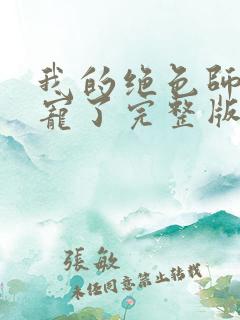 我的绝色师
宠了完整版
張敏
未经同意禁止转载